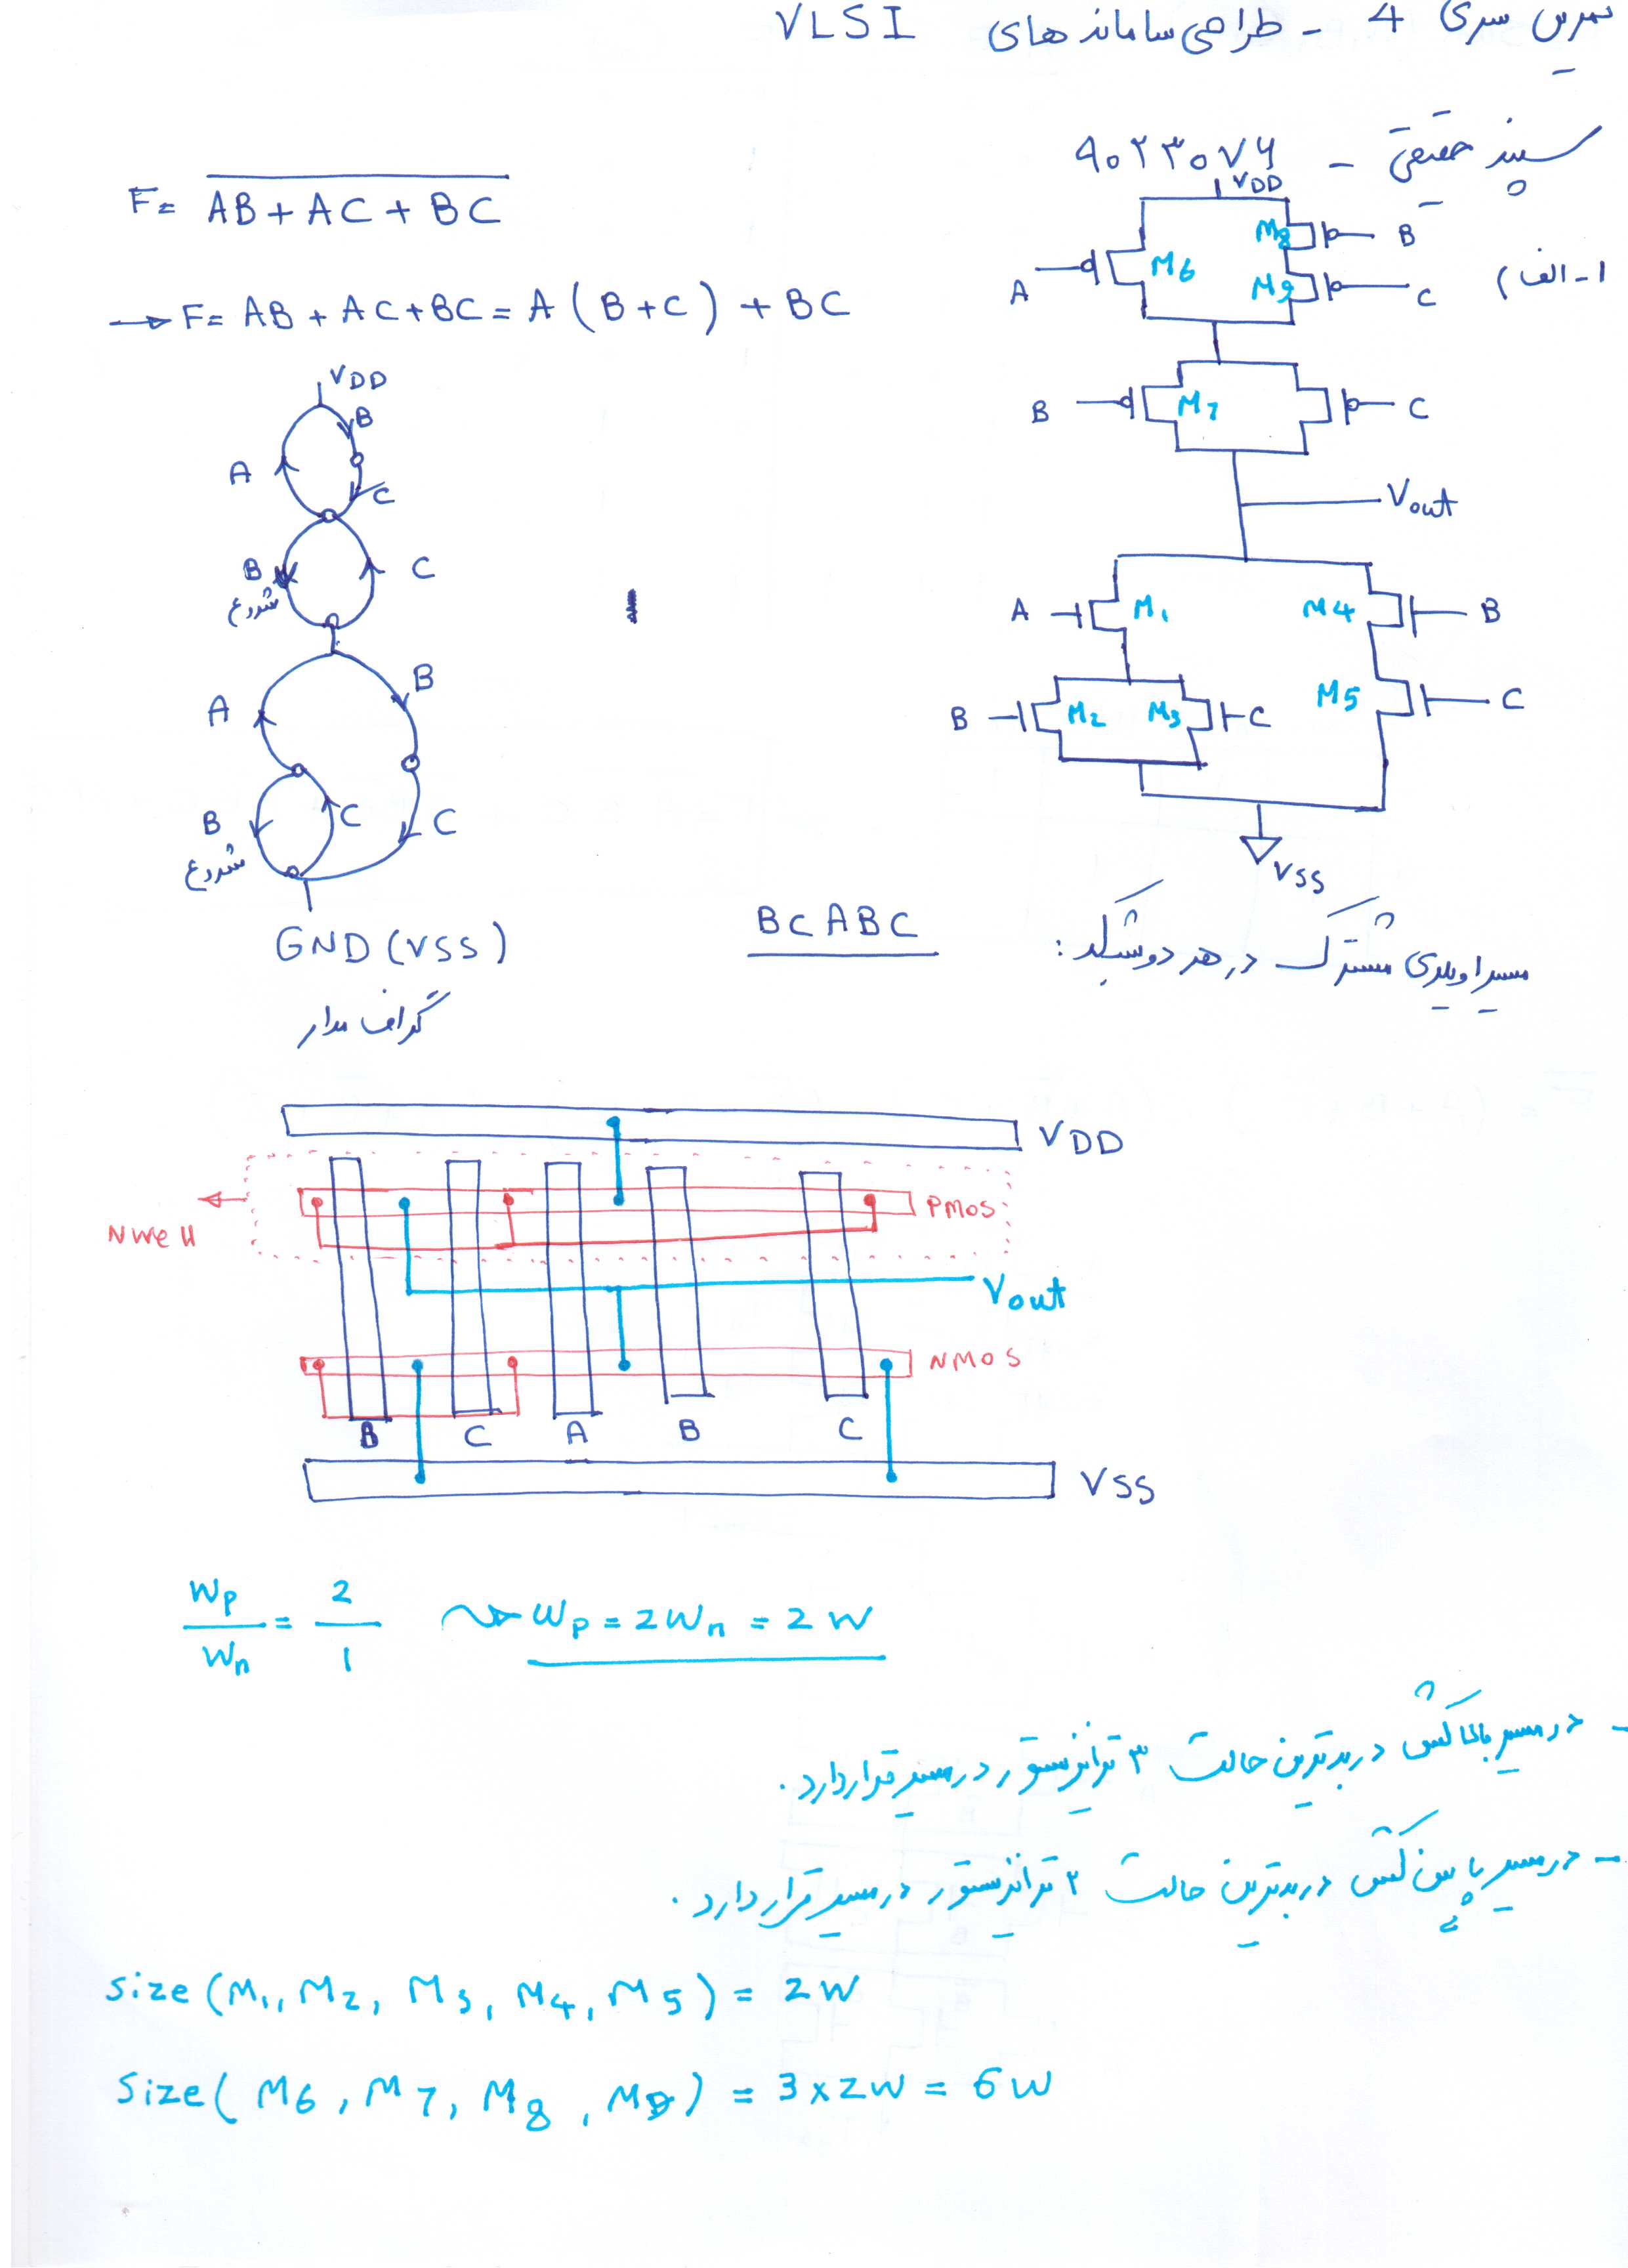 تمرین سری 4 - طراحی سامانه های VLSI
سپند حقیقی - ۴۰۲۳۰۷۶
۱-الف)
F= \overline{AB + AC + BC}
→ F= AB + AC + BC = A (B+C) + BC
VDD
B
A
C
B
C
شروع
A
B
B
C
C
شروع
GND (VSS)
گراف مدار
VDD
M8
B
A
M6
M9
C
B
M7
C
Vout
A
M1
M4
B
B
M2
M3
C
M5
C
VSS
مسیر اویلری مشترک در هر دو شبکه :
BCABC
VDD
Nwell
PMOS
Vout
NMOS
B C A B C
VSS
Wp/Wn = 2/1 ⇝ Wp = 2Wn = 2W
- در مسیر بالاکش در بدترین حالت ۳ ترانزیستور در مسیر قرار دارد.
- در مسیر پایین کش در بدترین حالت ۲ ترانزیستور در مسیر قرار دارد.
size (M1, M2, M3, M4, M5) = 2W
Size( M6, M7, M8, M9) = 3×2W = 6W